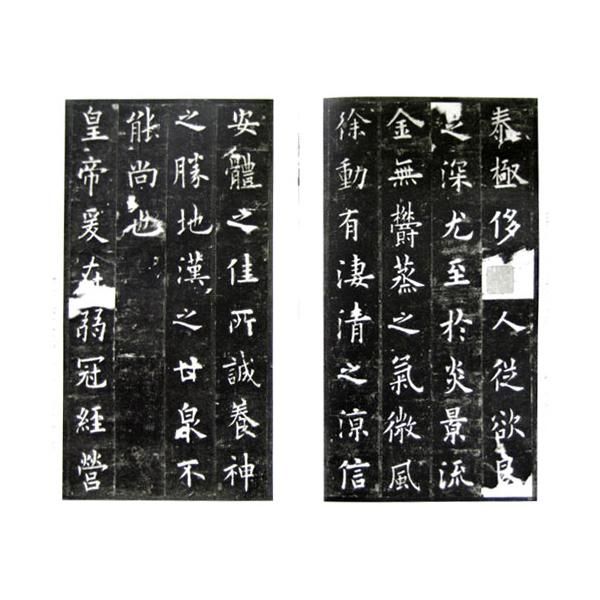 泰極侈人從欲良
足深尤至於炎景流
金無欝蒸之氣微風
徐動有淒清之涼信
安體之佳所誠養神
之勝地漢之甘泉不
能尚也
皇帝爰在弱冠經營